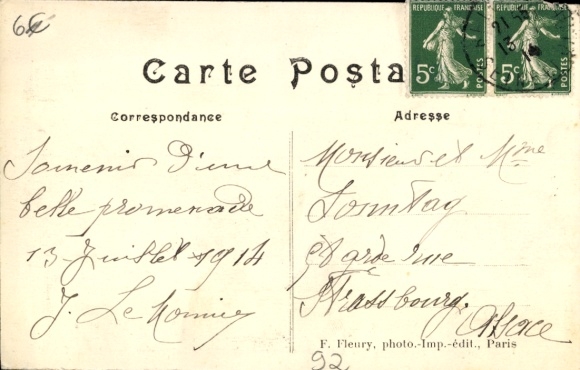 6€
RÉPUBLIQUE FRANÇAISE
RÉPUBLIQUE FRANÇAISE
5c POSTES
5c POSTES
Carte Posta
Correspondance
Souvenir d'une
belle promenade
13 Juillet 1914
J. Le
Adresse
Monsieur et Mme
Sonntag
rue
Strassbourg.
Alsace
F. Fleury, photo.-Imp.-édit., Paris
92